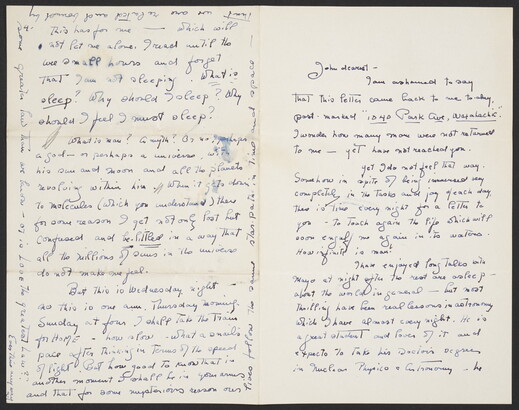 John dearest -
I am ashamed to say
that this letter came back to me to-day
post-marked "1340 Park Ave,
I wonder how many more were not returned
to me — yet have not reached you.
yet I do not feel that way.
Somehow in spite of being immersed very
completely in the tasks and joy each day
there is time every night for a letter to
you - to touch again the life which will
soon engulf me again in its waters.
How infinite is man.
I have enjoyed long talks with
Mayo at night after the rest are asleep -
about the world in general - but most
thrilling have been real lessons in astronomy
which I have almost every night. He is
a great student and lover of it and
expects to take his Doctors Degree
in Nuclear Physics & Astronomy - he
this has for me — which will
not let me alone. I read until the
wee small hours and forget
that I am not sleeping. What is
sleep? Why should I sleep? Why
should I feel I must sleep?
What is man? A myth? Or no, perhaps
a god - or perhaps a universe, with
his sun and moon and all the planets
revolving within him. When it gets down
to molecules (which you understand) then
for some reason I get not only lost but
confused and be-littled in a way that
all the millions of suns in the universe
do not make me feel.
But this is Wednesday night -
no this is one a.m. Thursday morning.
Sunday at four I shall take the train
for HOME - how slow - what a snails
pace after thinking in terms of the speed
of light. But how good to know that in
another moment I shall be in your arms
and that for some mysterious reason our
stars follow the same path in time and space -
some greater law than we know - or is Love the greatest law?